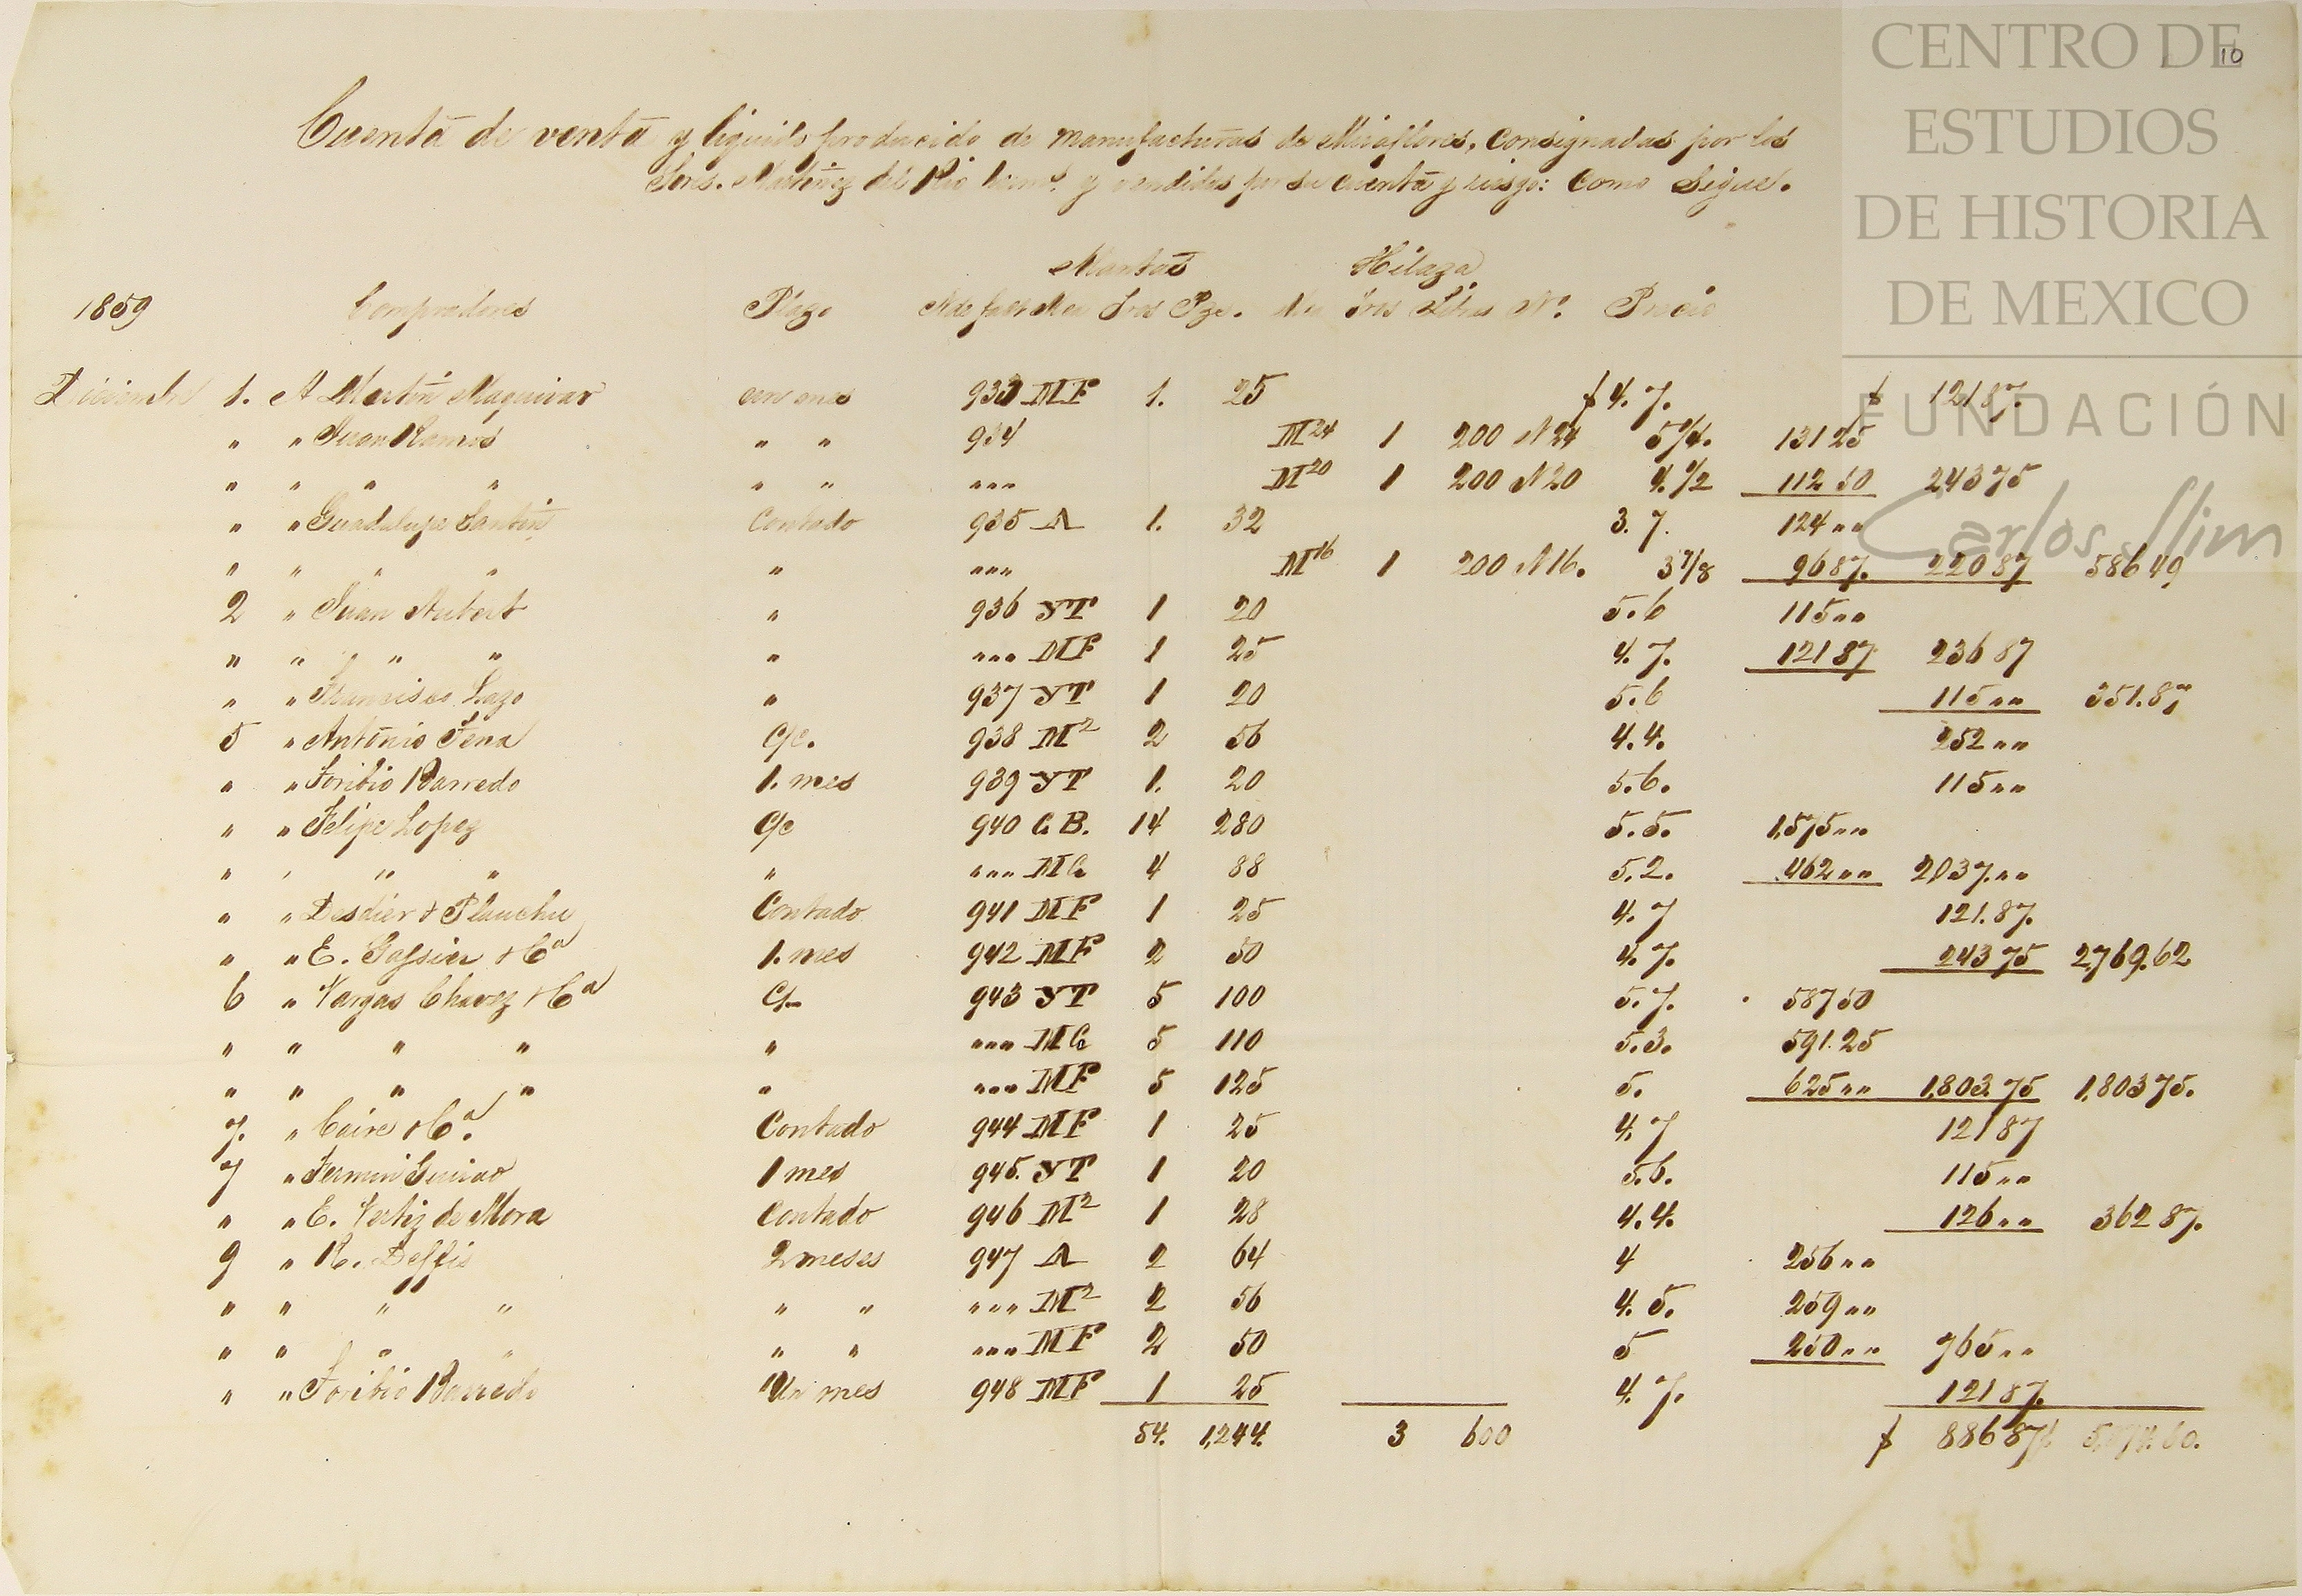 CENTRO DE
ESTUDIOS
DE HISTORIA
DE MEXICO
FUNDACIÓN
Carlos Slim
10
Cuenta de venta y liquido producido de manufacturas de Miraflores, consignadas por los
Sres. Martinez del Rio herms. y vendidas por su cuenta y riesgo: como sigue.
Mantas Hilaza
1859 Compradores Plazo Nde factMca Tros Pzs. Mca Tros Libras No. Precio
Diciembre 1. A Martin Maquivar un mes 933 MF 1. 25 $ 4. 7. $ 121 87.
" " Juan Ramos " " 934 M24 1 200 N24 5 1/4. 131 25
" " " " " " """ M20 1 200 N20 4. 1/2 112 50 243 75
" " Guadalupe Santin Contado 935 A 1. 32 3. 7. 124 ""
" " " " " """ M16 1 200 N16. 3 7/8 96 87. 220 87 586 49
2 " Juan Aubert " 936 YT 1 20 5. 6 115 ""
" " " " " """ MF 1 25 4. 7. 121 87 236 87
" " Francisco Lazo " 937 YT 1 20 5. 6 115 "" 351. 87
5 " Antonio Tena C/c. 938 M2 2 56 4. 4. 252 ""
" " Toribio Barredo 1. mes 939 YT 1. 20 5. 6. 115 ""
" " Felipe Lopez C/c 940 C. B. 14 280 5. 5. 1,575 ""
" " " " " """ MC 4 88 5. 2. 462 "" 2037. ""
" " Desdier & Planchu Contado 941 MF 1 25 4. 7 121. 87.
" " E. Gassier & Ca 1. mes 942 MF 2 50 4. 7. 243 75 2,769. 62
6 " Vargas Chavez & Ca C/c 943 YT 5 100 5. 7. 587 50
" " " " " """ MC 5 110 5. 3. 591. 25
" " " " " """ MF 5 125 5. 625 "" 1,803. 75 1,803 75.
7. " Caire & Ca. Contado 944 MF 1 25 4. 7 121 87
7 " Fermin Guirao 1 mes 945. YT 1 20 5. 6. 115 ""
" " E. Vertiz de Mora Contado 946 M2 1 28 4. 4. 126 "" 362 87.
9 " R. Deffis 2 meses 947 A 2 64 4 256 ""
" " " " " " """ M2 2 56 4. 5. 259 ""
" " " " " " """ MF 2 50 5 250 "" 765 ""
" " Toribio Barredo Un mes 948 MF 1 25 4. 7. 121 87.
54. 1,244. 3 600 $ 886 87 5,874. 60.